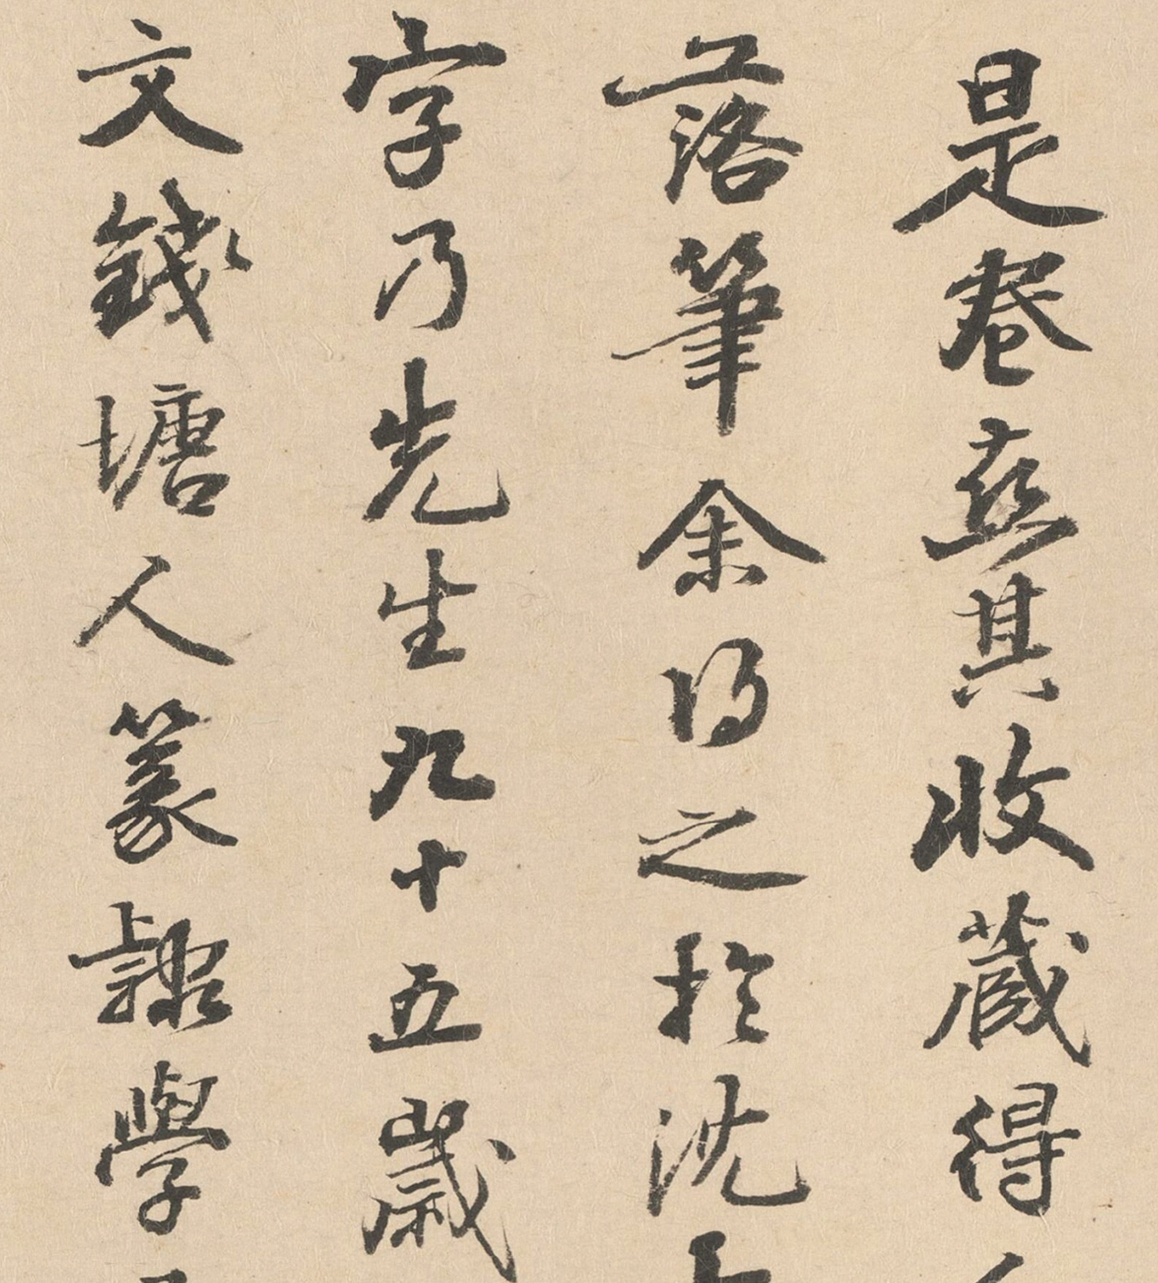 是卷其收藏得
落筆余得之於沈
字乃先生九十五歲
文錢塘人篆隸學